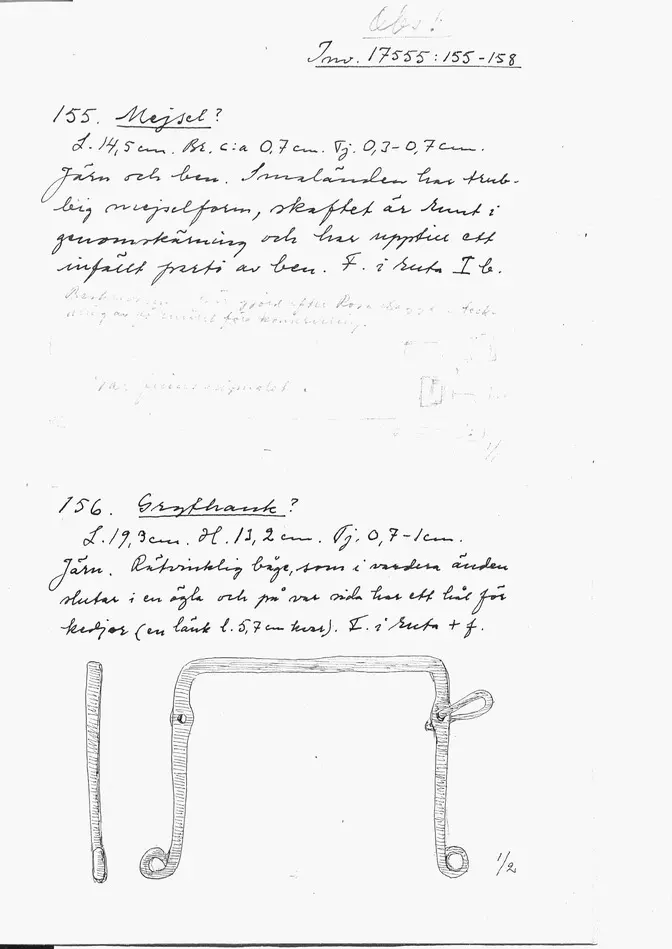 Obs!
Inv. 17555:155-158
155. Mejsel?
L. 14,5cm. Br. c:a 0,7cm. Tj. 0,3-0,7cm.
Järn och ben. Smaländen har trub-
big mejselform, skaftet är runt i
genomskärning och har upptill ett
infällt parti av ben. F. i ruta I b.
efter
före konservering.
1/1
156. Grythank?
L. 19,3cm. H. 13,2cm. Tj. 0,7-1cm.
Järn. Rätvinklig båge, som i vardera änden
slutar i en ögla och på var sida har ett hål för
kedjor (en länk l. 5,7cm kvar). F. i ruta + f.
1/2